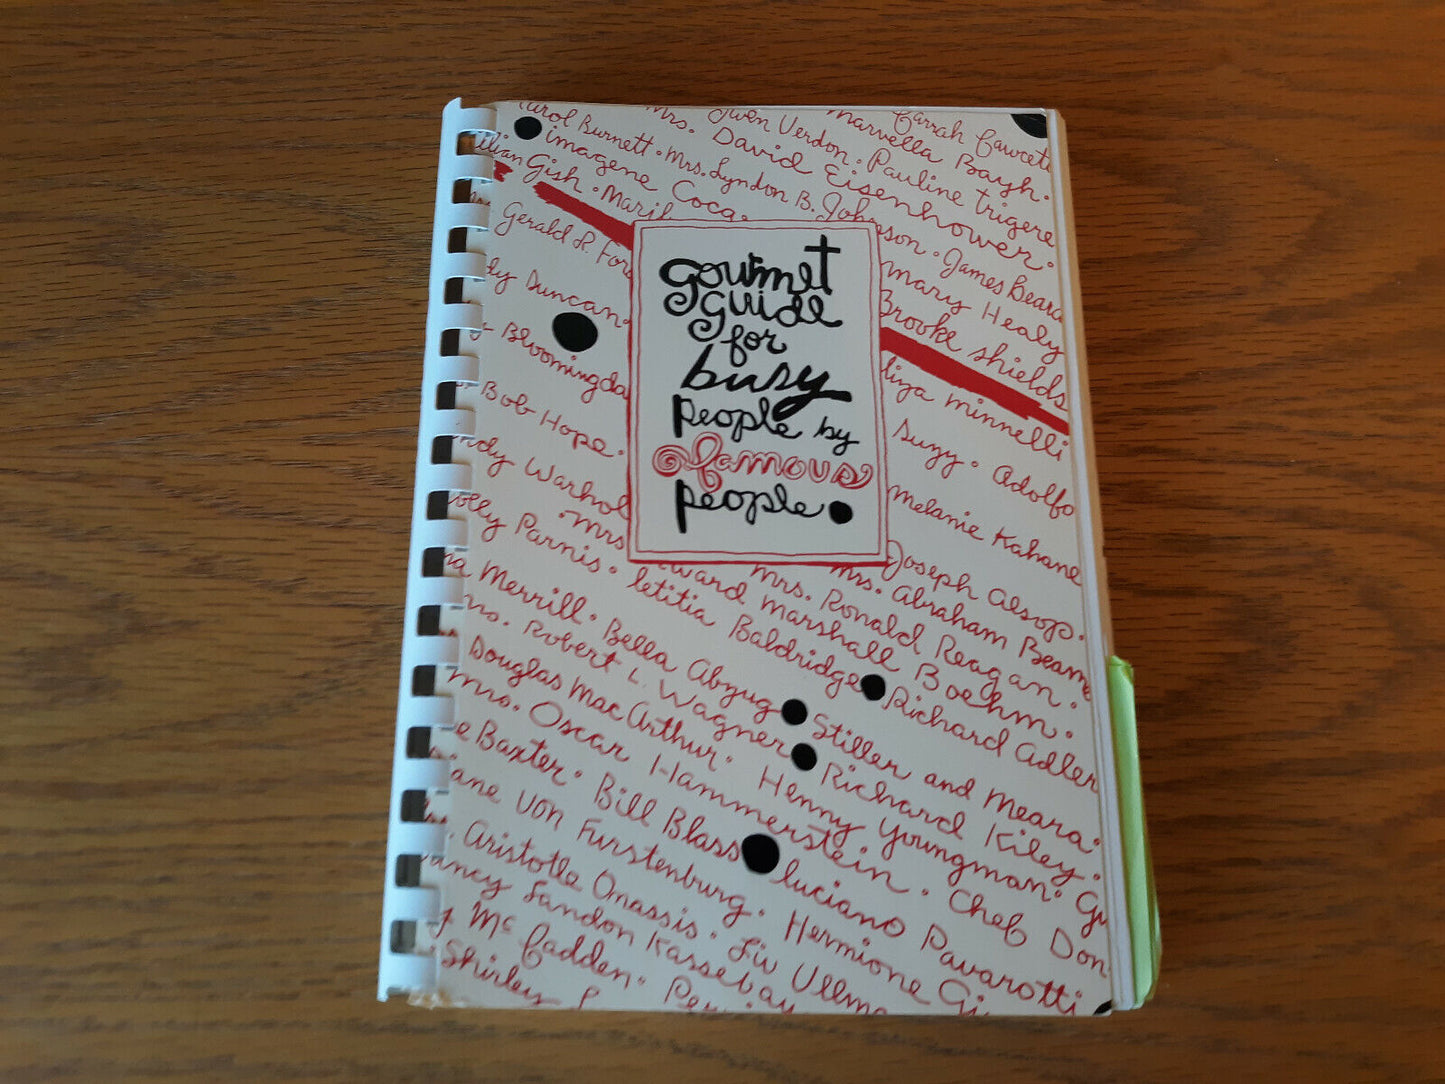 Farrah Fawcett
Gwen Verdon · Marvella Bayh ·
Carol Burnett · Mrs. David Eisenhower ·
Pauline Trigere
imagene Coca ·
Mrs. Lyndon B. Johnson · James Beard
Lilian Gish · Maril
Mary Healy
Gerald R. Ford
Brooke Shields
dy Duncan ·
liza Minnelli
Bloomingda
Suzy · Adolfo
Bob Hope ·
Melanie Kahane
ndy Warhol
Joseph Aesop ·
gourmet
guide
for
busy
people by
famous
people
· Mrs.
Mrs. Abraham Beame
olly Parnis ·
Mrs. Ronald Reagan ·
ward Marshall Boehm ·
letitia Baldridge
Richard Adler
na Merrill · Bella Abzug
Stiller and Meara ·
Robert L. Wagner
Richard Kiley · Gu
Douglas MacArthur · Henny Youngman ·
Mrs. Oscar Hammerstein · Chef Don
e Baxter · Bill Blass
luciano Pavarotti
iane von Furstenburg · Hermione Gi
Aristotle Onassis · Liv Ullma
ancy Landon Kassebaum
y McFadden ·
Shirley